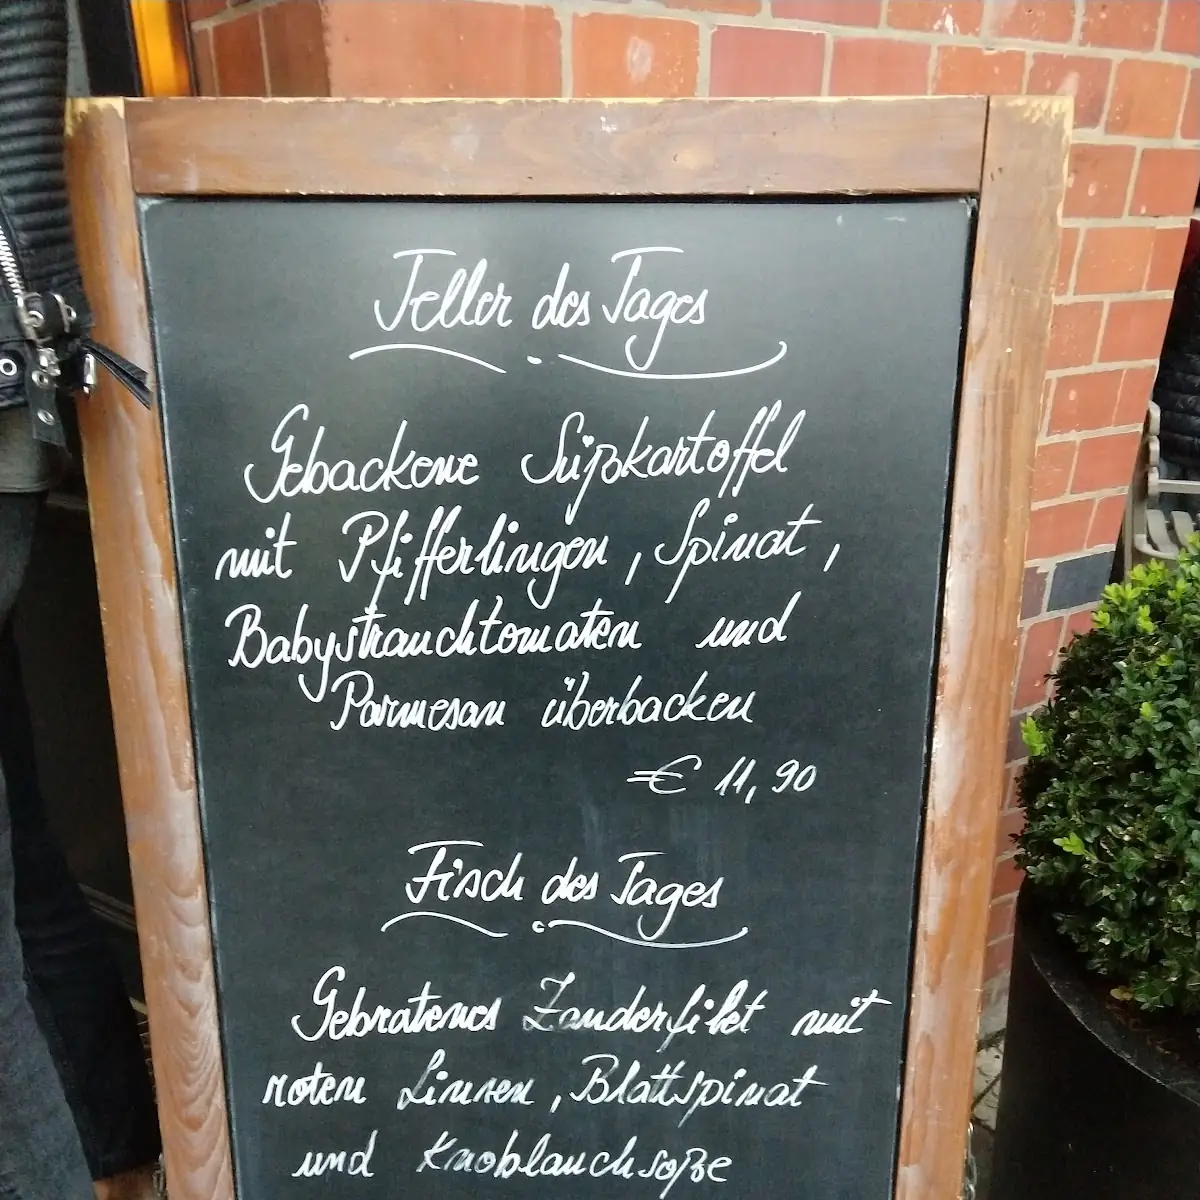 Teller des Tages
Gebackene Süßkartoffel
mit Pfifferlingen, Spinat,
Babystrauchtomaten und
Parmesan überbacken
€ 11,90
Fisch des Tages
Gebratenes Zanderfilet mit
roten Linsen, Blattspinat
und Knoblauchsoße